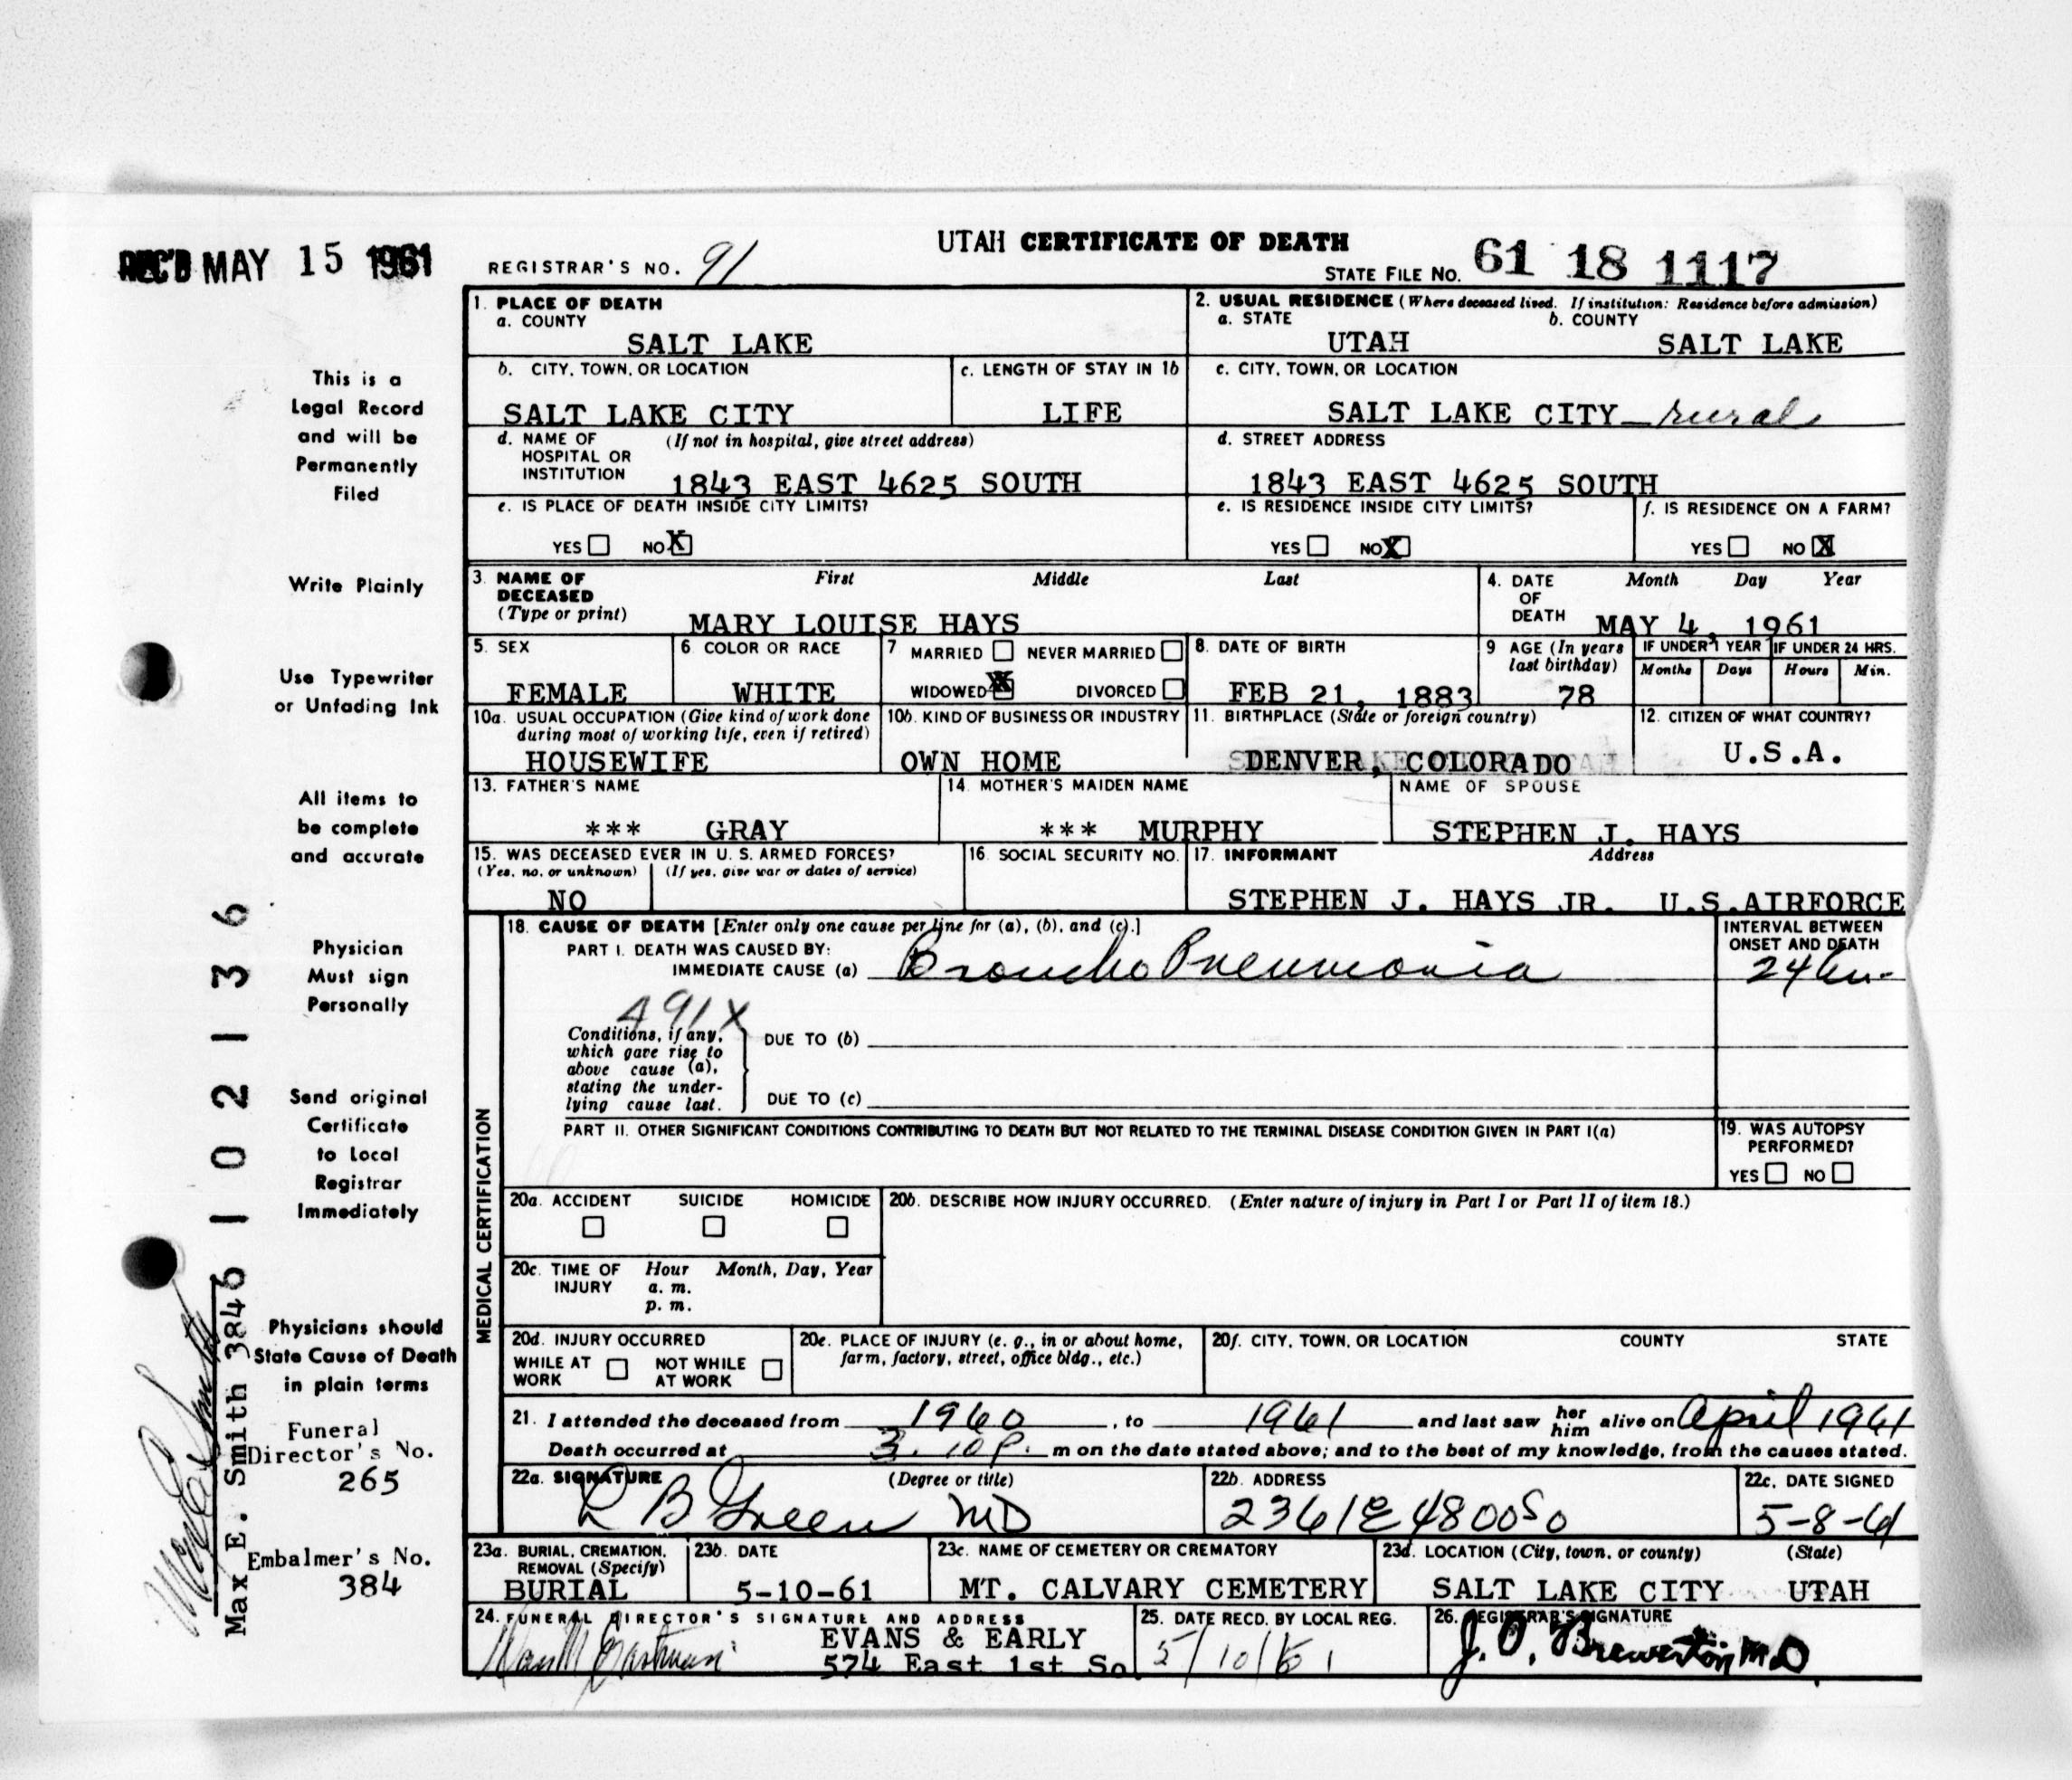 UTAH CERTIFICATE OF DEATH
REC'D MAY 15 1961
REGISTRAR'S NO. 91
STATE FILE NO. 61 18 1117
1. PLACE OF DEATH
a. COUNTY
SALT LAKE
2. USUAL RESIDENCE (Where deceased lived. If institution: Residence before admission)
a. STATE b. COUNTY
UTAH SALT LAKE
b. CITY, TOWN, OR LOCATION
SALT LAKE CITY
c. LENGTH OF STAY IN 1b
LIFE
c. CITY, TOWN, OR LOCATION
SALT LAKE CITY - rural
d. NAME OF HOSPITAL OR INSTITUTION (If not in hospital, give street address)
1843 EAST 4625 SOUTH
d. STREET ADDRESS
1843 EAST 4625 SOUTH
e. IS PLACE OF DEATH INSIDE CITY LIMITS?
YES NO X
e. IS RESIDENCE INSIDE CITY LIMITS?
YES NO X
f. IS RESIDENCE ON A FARM?
YES NO X
3. NAME OF DECEASED (Type or print)
First Middle Last
MARY LOUISE HAYS
4. DATE OF DEATH Month Day Year
MAY 4, 1961
5. SEX
FEMALE
6. COLOR OR RACE
WHITE
7 MARRIED NEVER MARRIED
WIDOWED X DIVORCED
8. DATE OF BIRTH
FEB 21, 1883
9 AGE (In years last birthday)
78
IF UNDER 1 YEAR IF UNDER 24 HRS.
Months Days Hours Min.
10a. USUAL OCCUPATION (Give kind of work done during most of working life, even if retired)
HOUSEWIFE
10b. KIND OF BUSINESS OR INDUSTRY
OWN HOME
11. BIRTHPLACE (State or foreign country)
DENVER, COLORADO
12. CITIZEN OF WHAT COUNTRY?
U.S.A.
13. FATHER'S NAME
*** GRAY
14. MOTHER'S MAIDEN NAME
*** MURPHY
NAME OF SPOUSE
STEPHEN J. HAYS
15. WAS DECEASED EVER IN U. S. ARMED FORCES?
(Yes, no, or unknown) (If yes, give war or dates of service)
NO
16. SOCIAL SECURITY NO.
17. INFORMANT Address
STEPHEN J. HAYS JR. U.S.AIRFORCE
18. CAUSE OF DEATH [Enter only one cause per line for (a), (b), and (c).]
PART I. DEATH WAS CAUSED BY:
IMMEDIATE CAUSE (a) Broncho Pneumonia
INTERVAL BETWEEN ONSET AND DEATH
24 hr.
491X
Conditions, if any, which gave rise to above cause (a), stating the underlying cause last.
DUE TO (b)
DUE TO (c)
PART II. OTHER SIGNIFICANT CONDITIONS CONTRIBUTING TO DEATH BUT NOT RELATED TO THE TERMINAL DISEASE CONDITION GIVEN IN PART I(a)
19. WAS AUTOPSY PERFORMED?
YES NO
MEDICAL CERTIFICATION
20a. ACCIDENT SUICIDE HOMICIDE
20b. DESCRIBE HOW INJURY OCCURRED. (Enter nature of injury in Part I or Part II of item 18.)
20c. TIME OF INJURY Hour Month, Day, Year
a. m.
p. m.
20d. INJURY OCCURRED
WHILE AT WORK NOT WHILE AT WORK
20e. PLACE OF INJURY (e. g., in or about home, farm, factory, street, office bldg., etc.)
20f. CITY, TOWN, OR LOCATION COUNTY STATE
21. I attended the deceased from 1960, to 1961 and last saw her him alive on April 1961
Death occurred at 3:10 p. m on the date stated above; and to the best of my knowledge, from the causes stated.
22a. SIGNATURE (Degree or title)
L B Green MD
22b. ADDRESS
2361 E 4800 So
22c. DATE SIGNED
5-8-61
23a. BURIAL, CREMATION, REMOVAL (Specify)
BURIAL
23b. DATE
5-10-61
23c. NAME OF CEMETERY OR CREMATORY
MT. CALVARY CEMETERY
23d. LOCATION (City, town, or county) (State)
SALT LAKE CITY UTAH
24. FUNERAL DIRECTOR'S SIGNATURE AND ADDRESS
EVANS & EARLY
574 East 1st So.
25. DATE RECD. BY LOCAL REG.
5/10/61
26. REGISTRAR'S SIGNATURE
J. O. Brewerton M.D.
This is a
Legal Record
and will be
Permanently
Filed
Write Plainly
Use Typewriter
or Unfading Ink
All items to
be complete
and accurate
Physician
Must sign
Personally
Send original
Certificate
to Local
Registrar
Immediately
Physicians should
State Cause of Death
in plain terms
Funeral
Director's No.
265
Embalmer's No.
384
Max E. Smith 3846
Max E Smith
102136